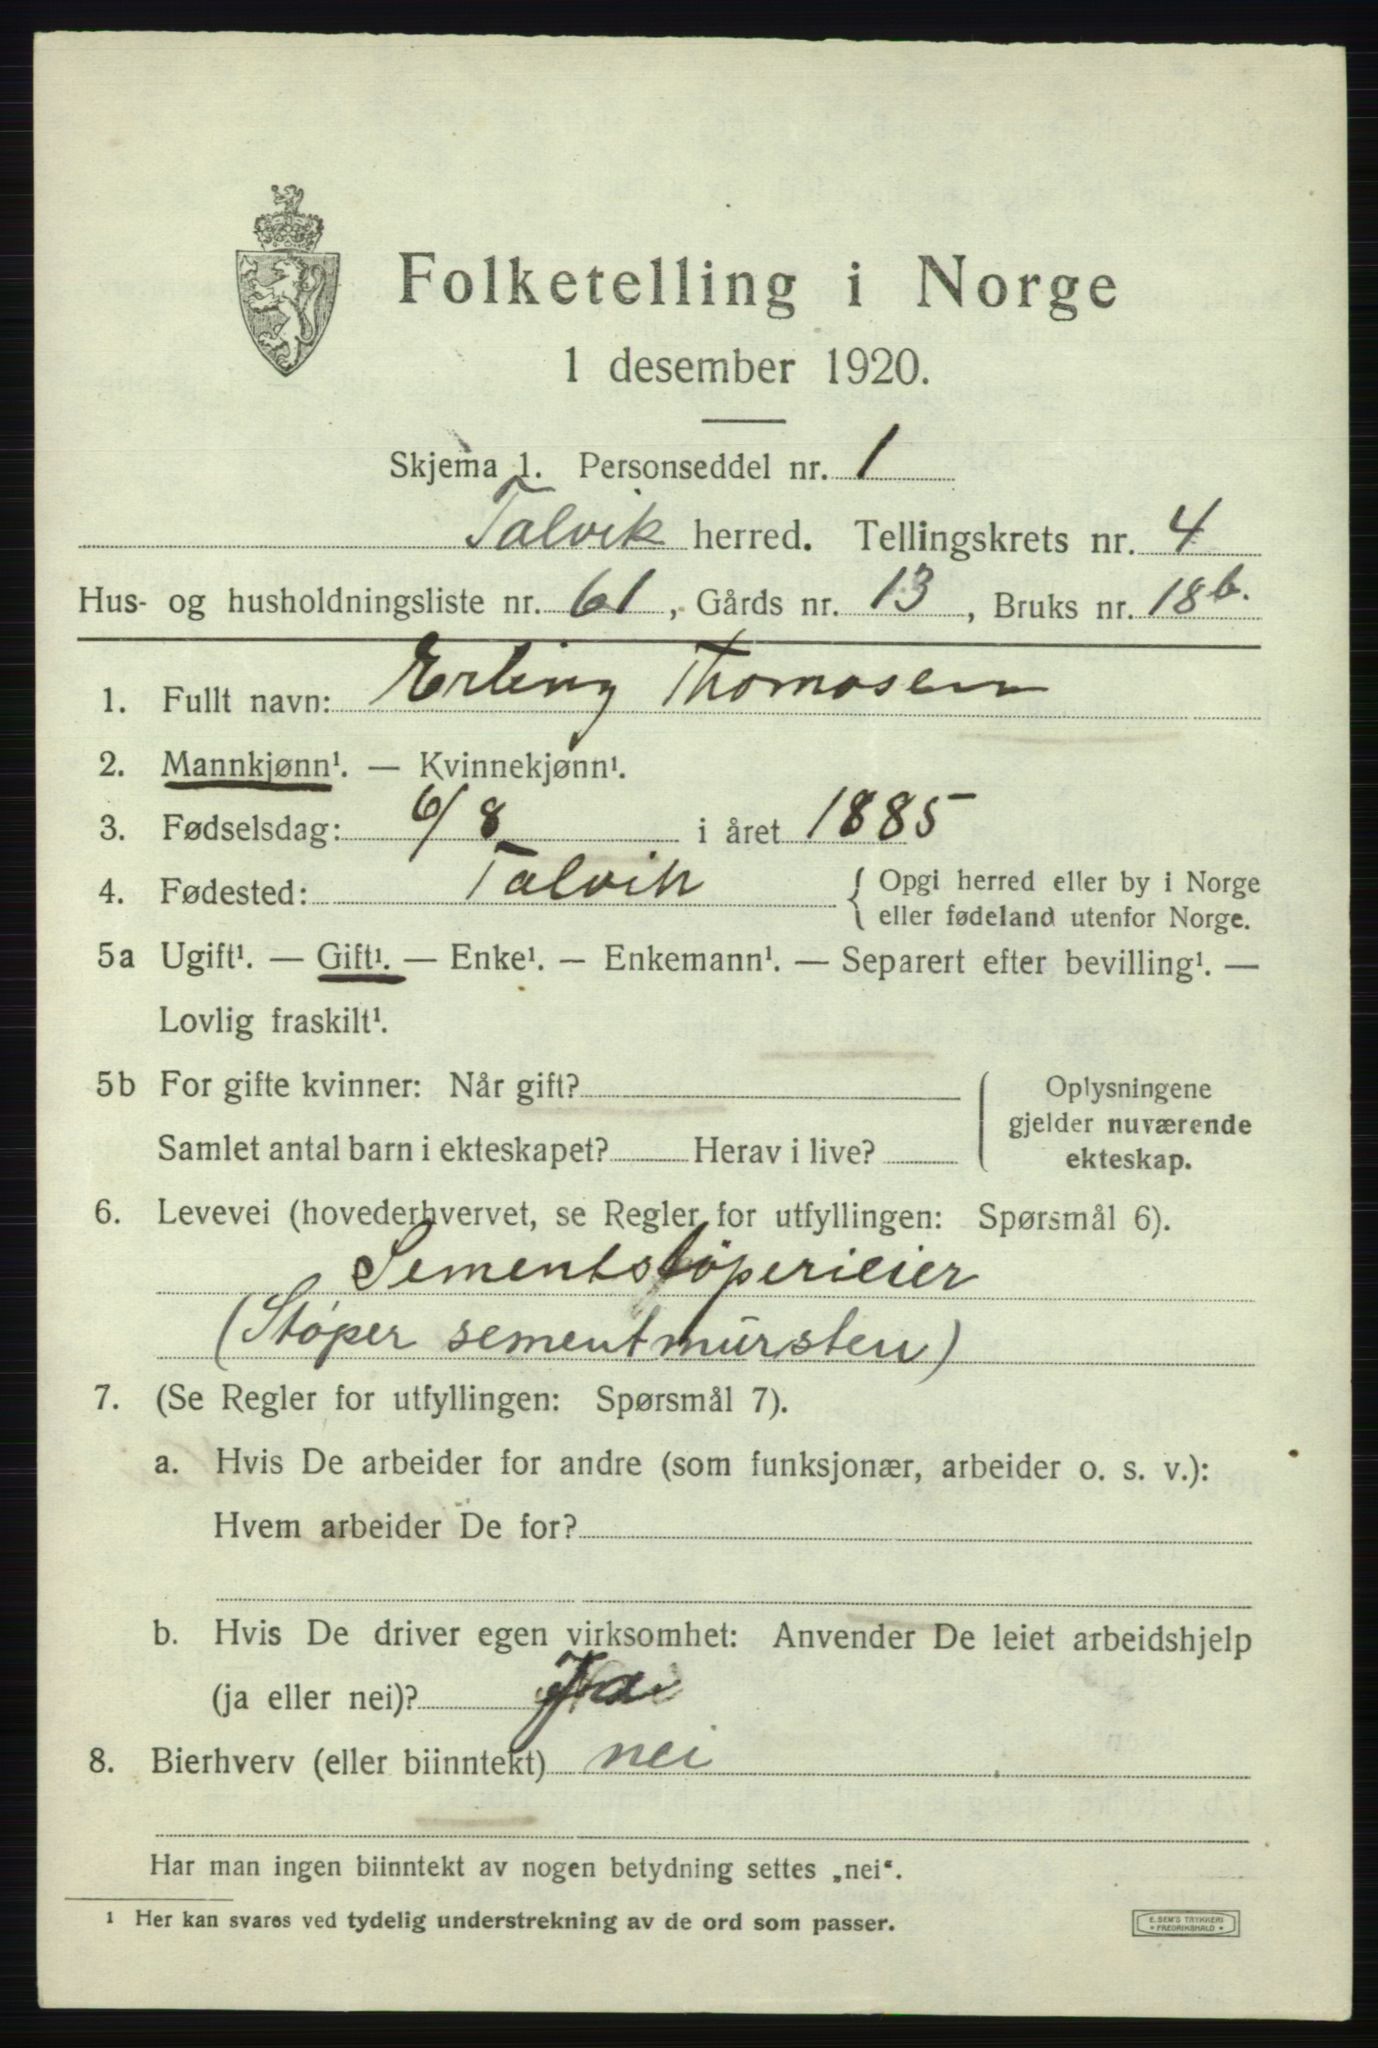 Folketelling i Norge
1 desember 1920.
Skjema 1. Personseddel nr. 1
Talvik herred. Tellingskrets nr. 4
Hus- og husholdningsliste nr. 61, Gårds nr. 13, Bruks nr. 18b.
1. Fullt navn: Erling Thomasen
2. Mannkjønn¹. — Kvinnekjønn¹.
3. Fødselsdag: 6/8 i året 1885
4. Fødested: Talvik { Opgi herred eller by i Norge
eller fødeland utenfor Norge.
5a Ugift¹. — Gift¹. — Enke¹. — Enkemann¹. — Separert efter bevilling¹. —
Lovlig fraskilt¹.
5b For gifte kvinner: Når gift?
Samlet antal barn i ekteskapet? Herav i live?
Oplysningene
gjelder nuværende
ekteskap.
6. Levevei (hovederhvervet, se Regler for utfyllingen: Spørsmål 6).
Sementstøperieier
(Støper sementmursten)
7. (Se Regler for utfyllingen: Spørsmål 7).
a. Hvis De arbeider for andre (som funksjonær, arbeider o. s. v.):
Hvem arbeider De for?
b. Hvis De driver egen virksomhet: Anvender De leiet arbeidshjelp
(ja eller nei)? Ja
8. Bierhverv (eller biinntekt) nei
Har man ingen biinntekt av nogen betydning settes „nei“.
¹ Her kan svares ved tydelig understrekning av de ord som passer.
E. SEM'S TRYKKERI
* FREDRIKSHALD *